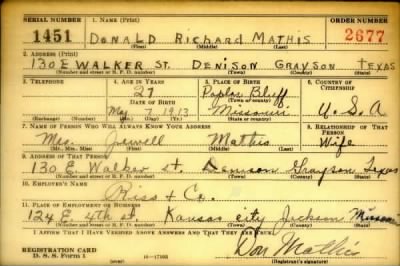 SERIAL NUMBER 1. NAME (Print) ORDER NUMBER
1451 DONALD RICHARD MATHIS 2677
(First) (Middle) (Last)
2. ADDRESS (Print)
130 E WALKER ST. DENISON GRAYSON TEXAS
(Number and street or R. F. D. number) (Town) (County) (State)
3. TELEPHONE 4. AGE IN YEARS 5. PLACE OF BIRTH 6. COUNTRY OF CITIZENSHIP
27 Poplar Bluff
DATE OF BIRTH (Town or county)
May 7 1913 Missouri U.S.A
(Exchange) (Number) (Mo.) (Day) (Yr.) (State or country)
7. NAME OF PERSON WHO WILL ALWAYS KNOW YOUR ADDRESS 8. RELATIONSHIP OF THAT PERSON
Mrs. Jewell Mathis Wife
(Mr., Mrs., Miss) (First) (Middle) (Last)
9. ADDRESS OF THAT PERSON
130 E. Walker st. Denison Grayson Texas
(Number and street or R. F. D. number) (Town) (County) (State)
10. EMPLOYER'S NAME
Riss + Co.
11. PLACE OF EMPLOYMENT OR BUSINESS
124 E. 4th st. Kansas city Jackson Missouri
(Number and street or R. F. D. number) (Town) (County) (State)
I AFFIRM THAT I HAVE VERIFIED ABOVE ANSWERS AND THAT THEY ARE TRUE.
REGISTRATION CARD Don Mathis
D. S. S. Form 1 16—17105 (Registrant's signature)